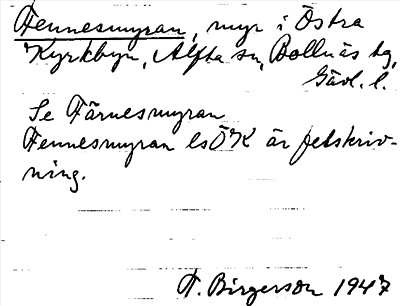 Fennesmyran, myr i Östra
Kyrkbyn, Alfta sn, Bollnäs tg,
Gävl. l.
Se Färnesmyran
Fennesmyran lsÖK är felskriv-
ning.
T. Birgerson 1947